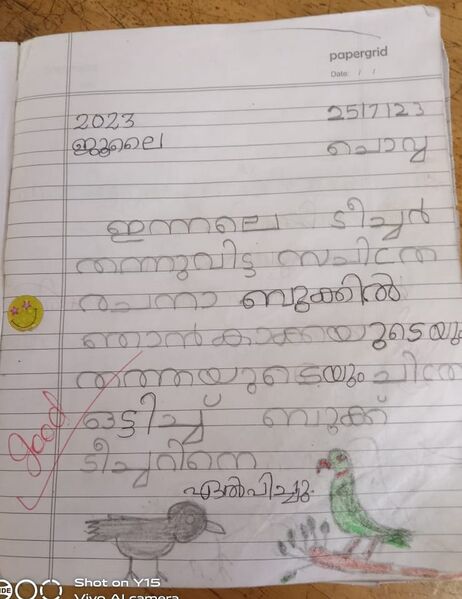 papergrid
Date: / /
2023 25/7/23
ജൂലൈ ചൊവ്വ
ഇന്നലെ ടീച്ചർ
തന്നുവിട്ട സചിത്ര
രചനാ ബുക്കിൽ
ഞാൻ കാക്കയുടെയും
തത്തയുടെയും ചിത്രം
ഒട്ടിച്ച് ബുക്ക്
ടീച്ചറിനെ
ഏൽപിച്ചു.
Good
Shot on Y15
Vivo AI camera